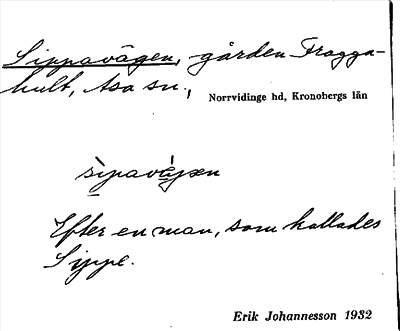 Sippavägen, gården Fragga-
hult, Asa sn.,
Norrvidinge hd, Kronobergs län
sipavägen
Efter en man, som kallades
Sippe.
Erik Johannesson 1932